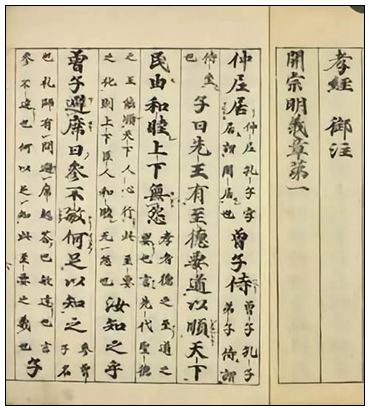 孝經 御注
開宗明義章第一
仲𡰱居 仲𡰱孔子字居謂閒居也 曾子侍 曾子孔子弟子侍謂
侍坐也 子曰先王有至德要道以順天下
民由和睦上下無怨 孝者德之至道之要也言先代聖德
之王能順天下人心行此至要之化則上下臣人和睦无怨也 汝知之乎
曾子避席曰參不敏何足以知之 參曾子名
也礼師有問避席起荅也敏達也言參不達也何以足知此至要之義也 子